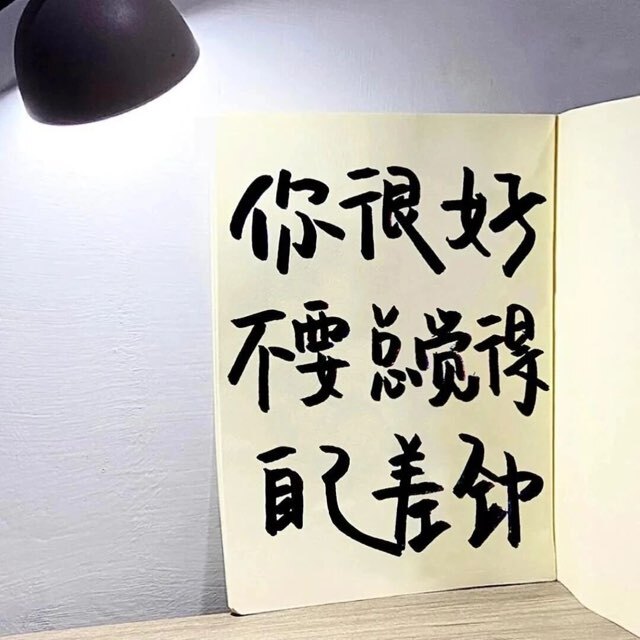 你很好
不要总觉得
自己差钟